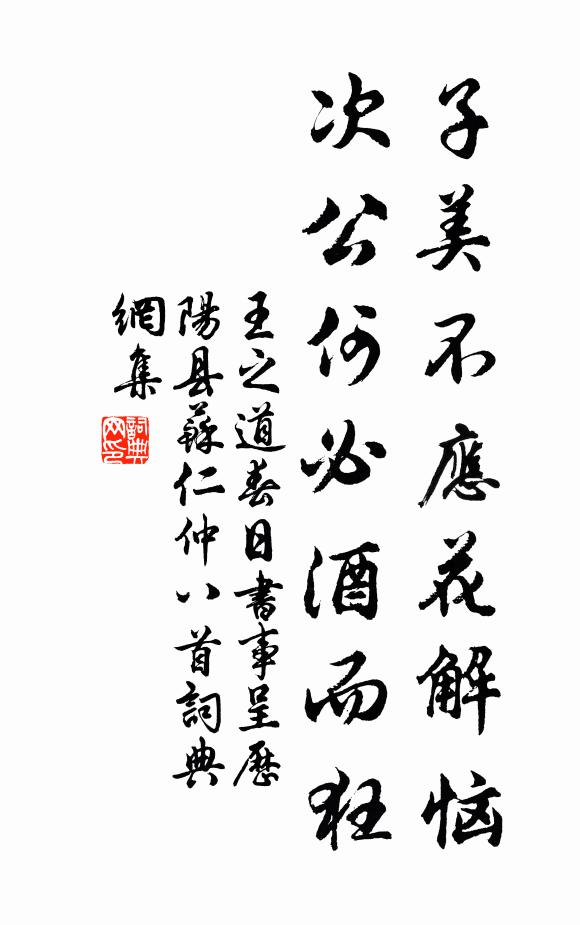 子美不應花解恼
次公何必酒而狂
王之道春日書事呈歷
陽县蘇仁仲八首詞典
網集
詞典
网印